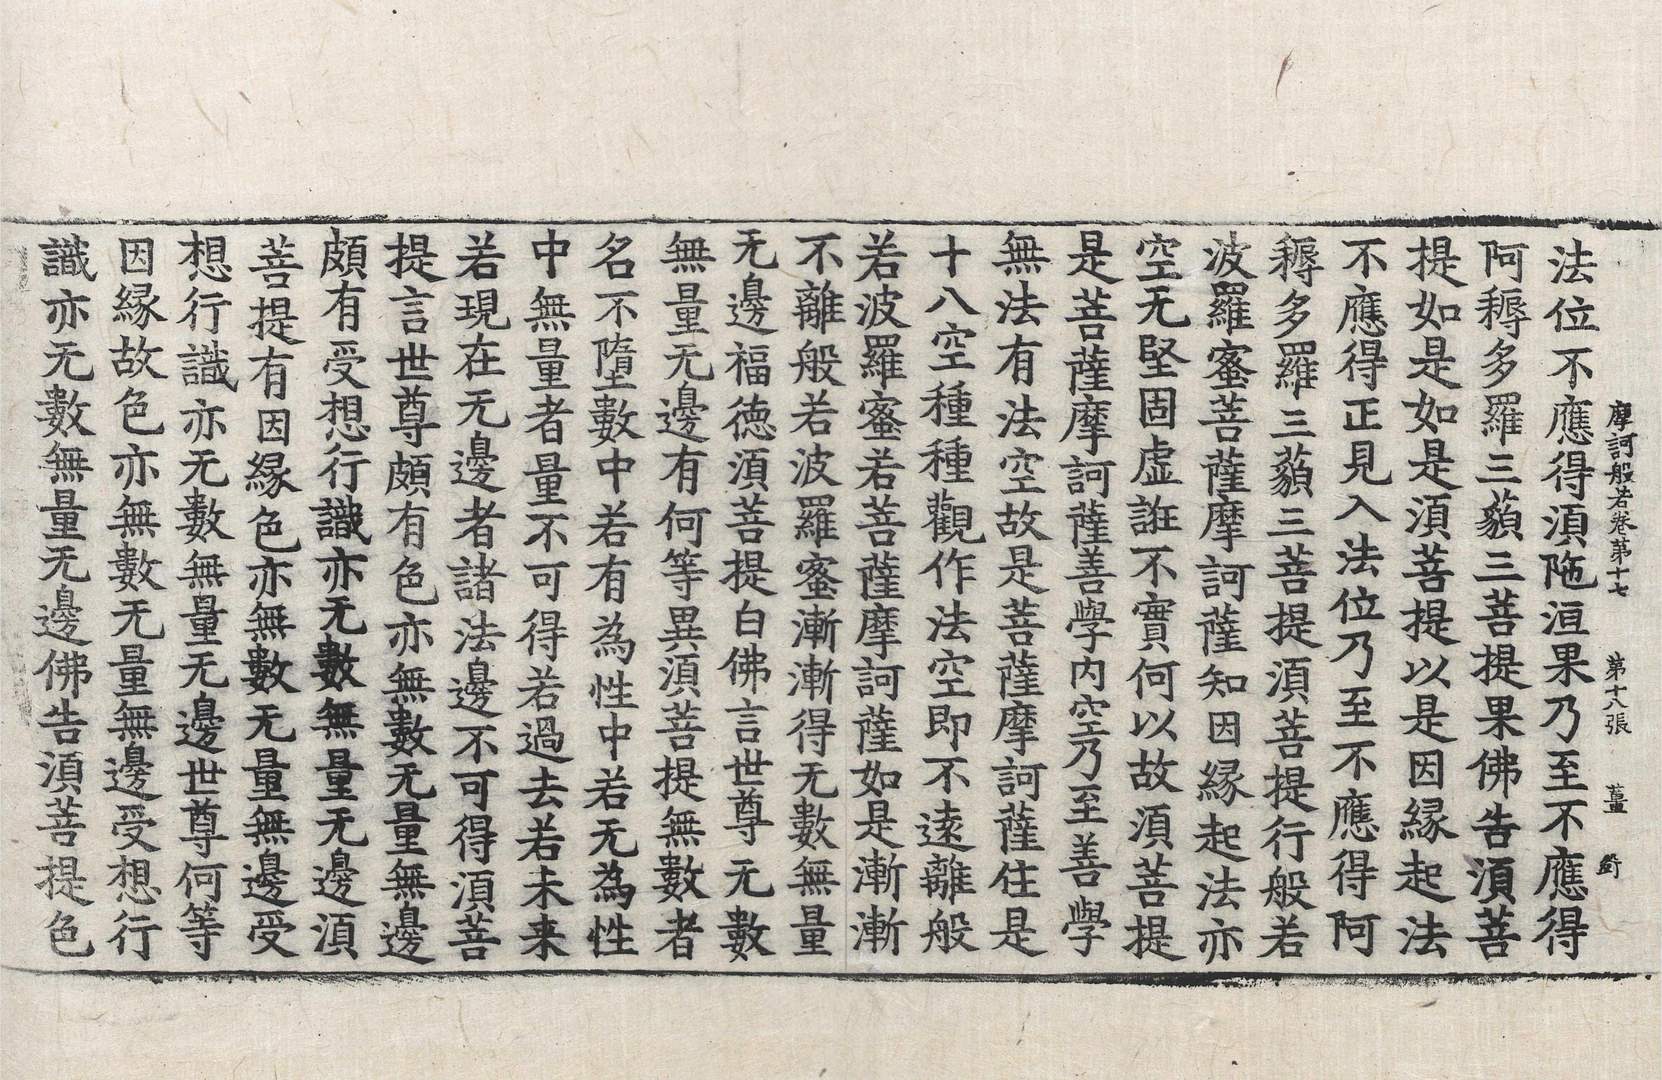 摩訶般若卷第十七 第十八張 薑
法位不應得湏陁洹果乃至不應得
阿耨多羅三藐三菩提果佛告湏菩
提如是如是湏菩提以是因縁起法
不應得正見入法位乃至不應得阿
耨多羅三藐三菩提湏菩提行般若
波羅蜜菩薩摩訶薩知因縁起法亦
空无堅固虛誑不實何以故湏菩提
是菩薩摩訶薩善學内空乃至善學
無法有法空故是菩薩摩訶薩住是
十八空種種觀作法空即不遠離般
若波羅蜜若菩薩摩訶薩如是漸漸
不離般若波羅蜜漸漸得无數無量
无邊福德湏菩提白佛言世尊无數
無量无邊有何等異湏菩提無數者
名不墮數中若有為性中若无為性
中無量者量不可得若過去若未来
若現在无邊者諸法邊不可得湏菩
提言世尊頗有色亦無數无量無邊
頗有受想行識亦无數無量无邊湏
菩提有因縁色亦無數无量無邊受
想行識亦无數無量无邊世尊何等
因縁故色亦無數无量無邊受想行
識亦无數無量无邊佛告湏菩提色